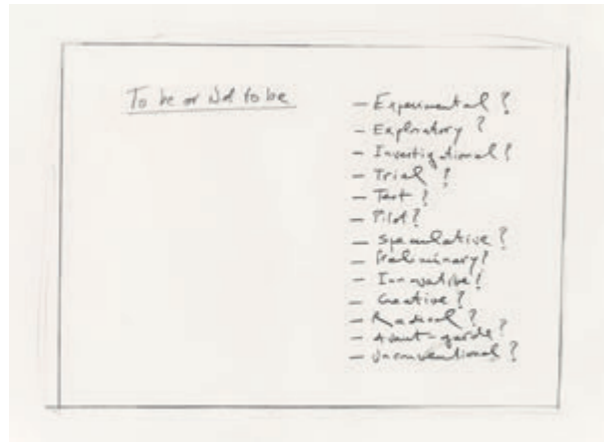 To be or Not to be
– Experimental ?
– Exploratory ?
– Investigational ?
– Trial ?
– Test ?
– Pilot ?
– Speculative ?
– Preliminary ?
– Innovative ?
– Creative ?
– Radical ?
– Avant-garde ?
– Unconventional ?